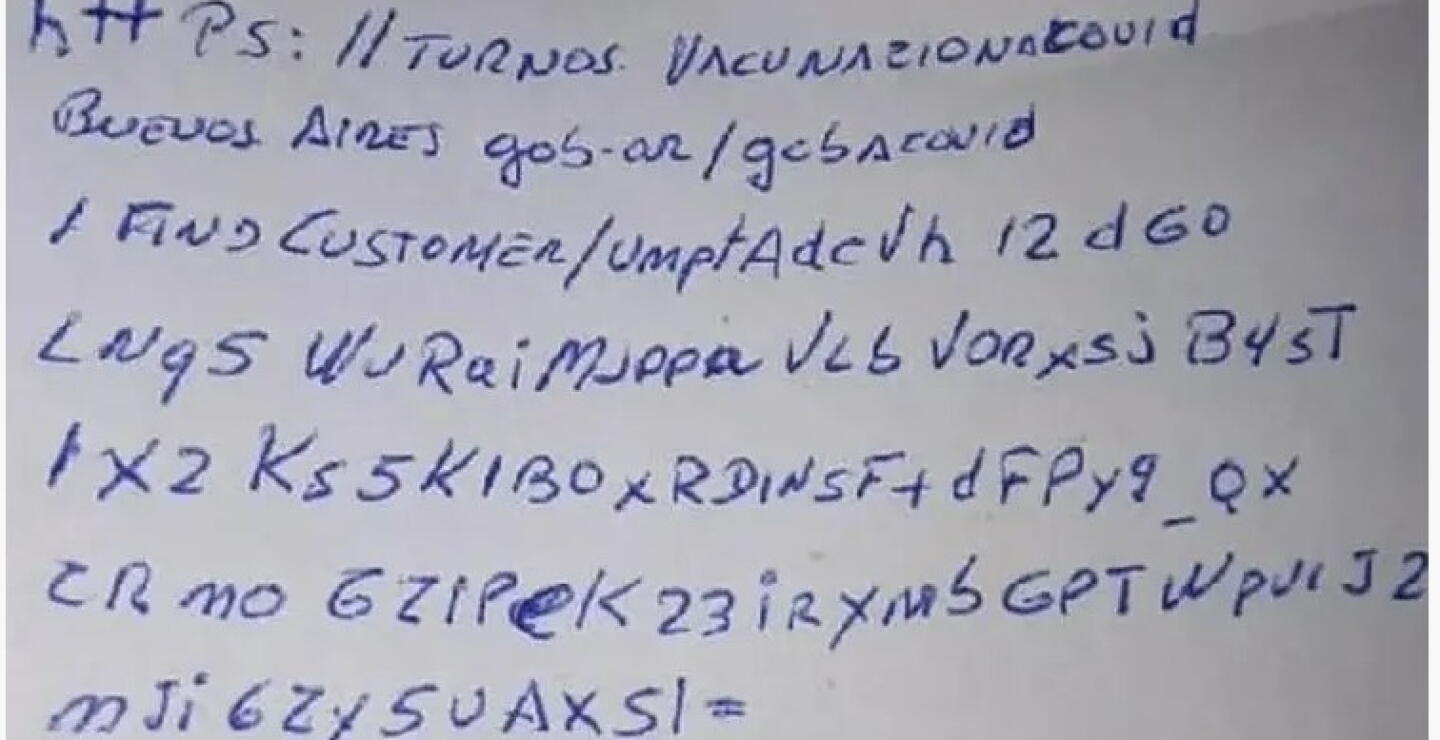 hTT PS: // TURNOS. VACUNAZIONACOVId
BUENOS AIRES gob-ar/gcbAcovid
/ FIND CUSTOMER/UmptAdcVh 12 dGO
LNq5 WJRaiMJppa VLb VORxsj B4sT
1X2 Ks5K1BOxRDINsF+dFPyq_QX
ZR mo GZIPeK23iRXMbGPTWpurJ2
mJi6Zy5UAXSI=